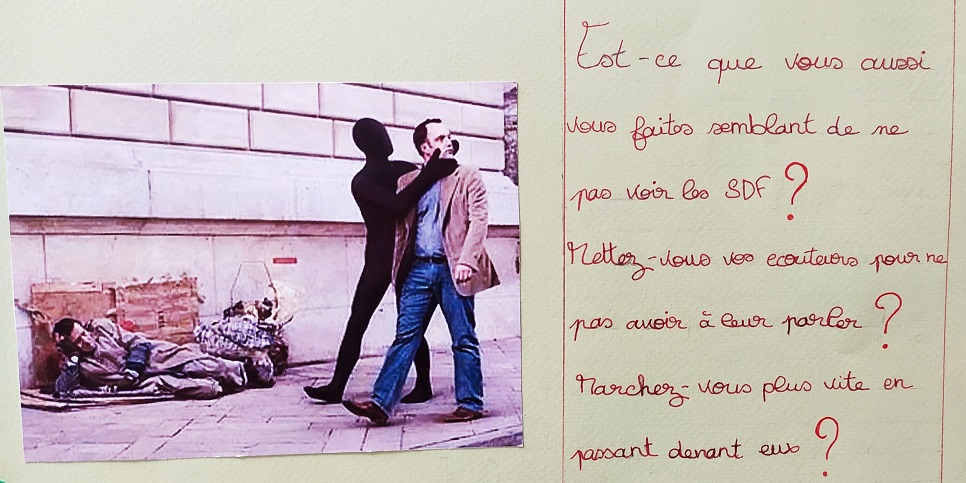 Est-ce que vous aussi
vous faites semblant de ne
pas voir les SDF ?
Mettez-vous vos ecouteurs pour ne
pas avoir à leur parler ?
Marchez-vous plus vite en
passant devant eux ?